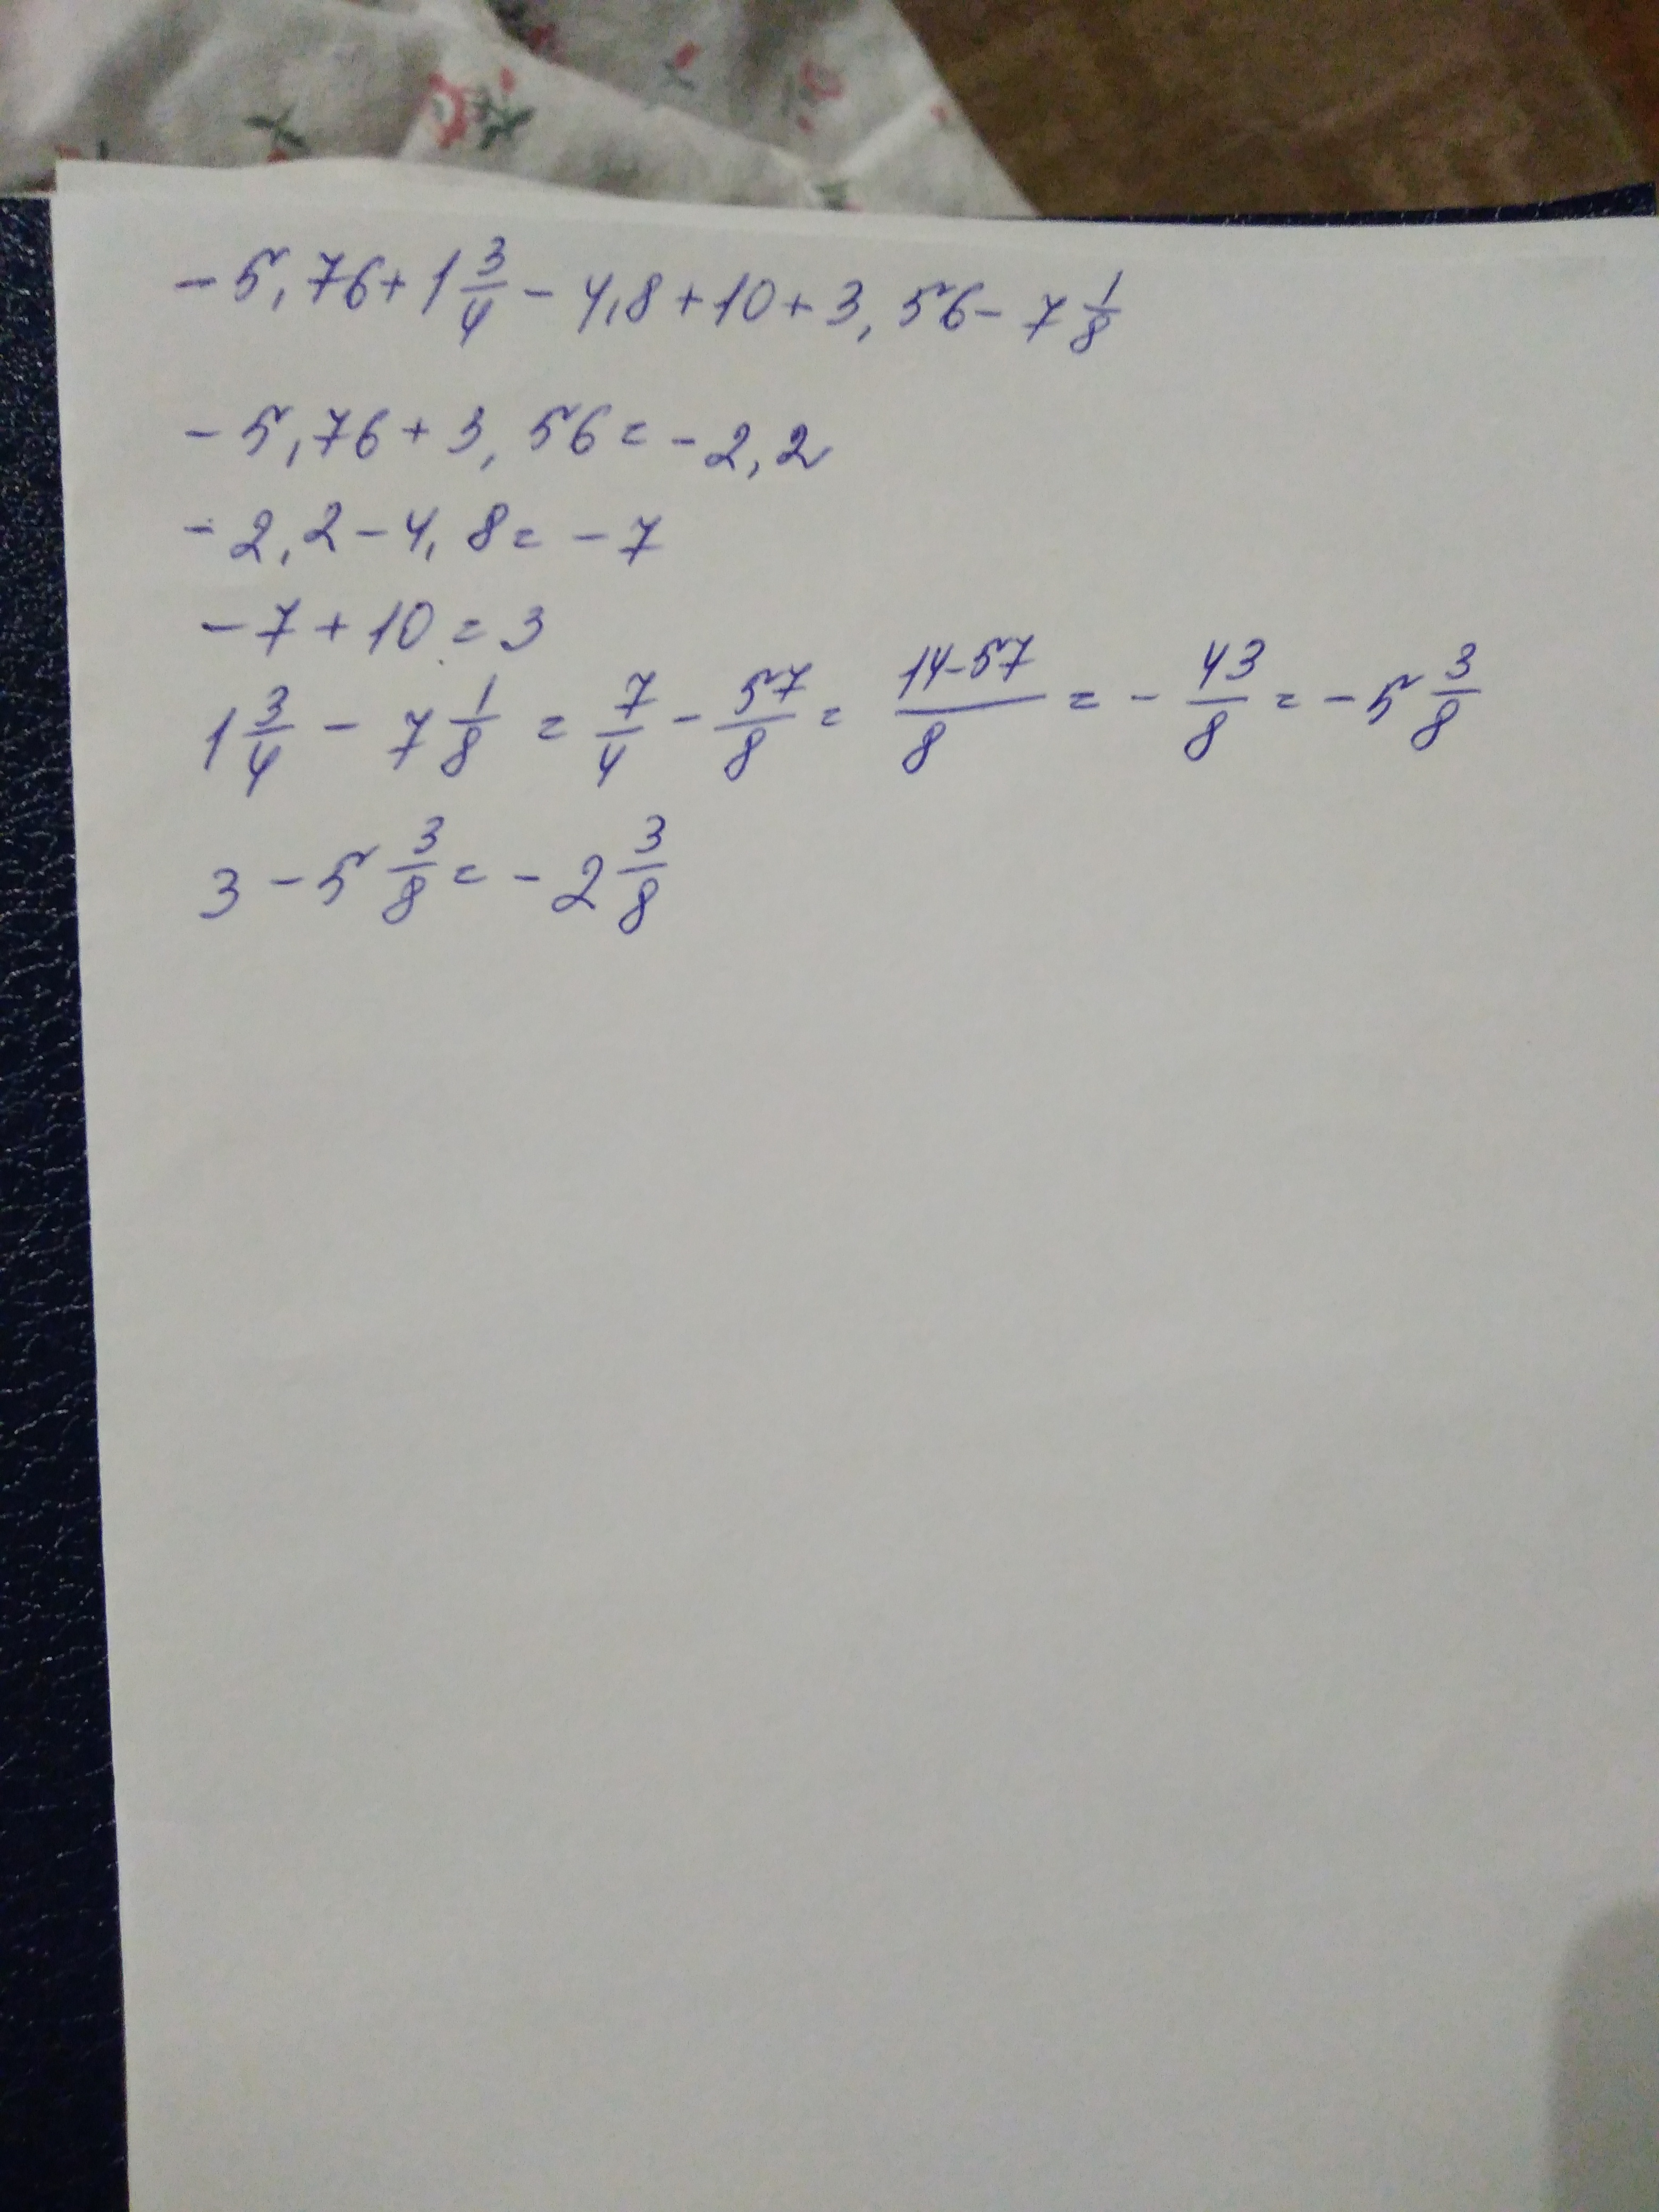 -5,76+1 3/4-4,8+10+3,56-7 1/8
-5,76+3,56=-2,2
-2,2-4,8=-7
-7+10=3
1 3/4-7 1/8=7/4-57/8=14-57/8=-43/8=-5 3/8
3-5 3/8=-2 3/8